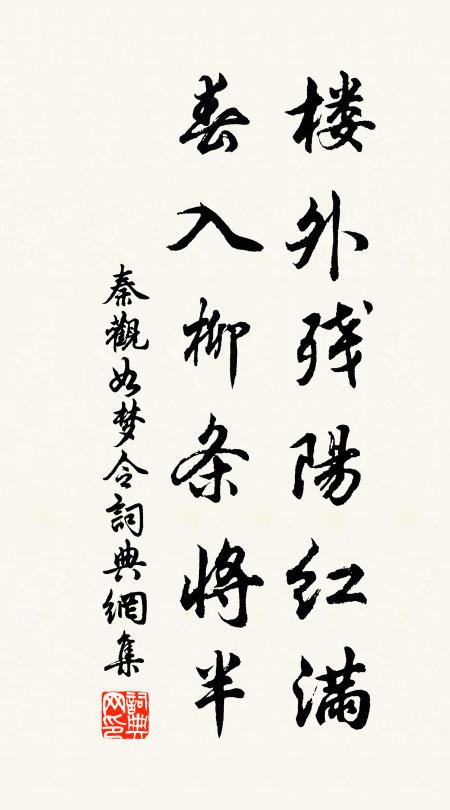 楼外残陽红满
春入柳条将半
秦觀如梦令詞典網集
詞典網印